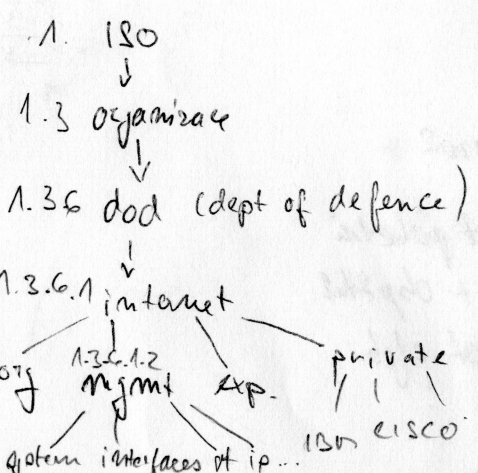 1. ISO
1.3 organizace
1.3 6 dod (dept of defence)
1.3.6.1 internet
org 1.3.6.1.2 mgmt exp. private
system interfaces at ip... IBM CISCO